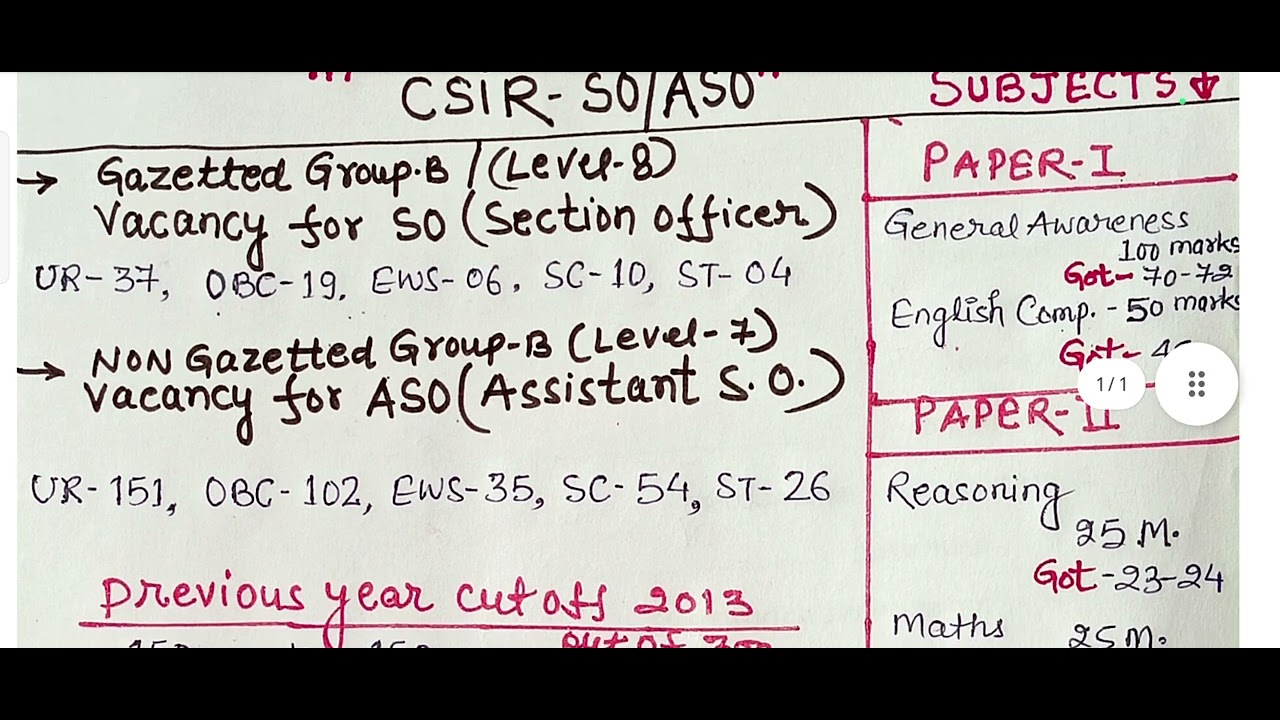 CSIR- SO/ASO"
→ Gazetted Group-B / (Level-8)
Vacancy for SO (Section officer)
UR-37, OBC-19, EWS-06, SC-10, ST-04
→ NON Gazetted Group-B (Level-7)
Vacancy for ASO (Assistant S.O.)
UR-151, OBC-102, EWS-35, SC-54, ST-26
Previous year cutoff 2013
out of 300
SUBJECTS
PAPER-I
General Awareness
100 marks
Got- 70-72
English Comp. - 50 marks
Got-
1/1
PAPER-II
Reasoning
25 M.
Got -23-24
Maths
25M.